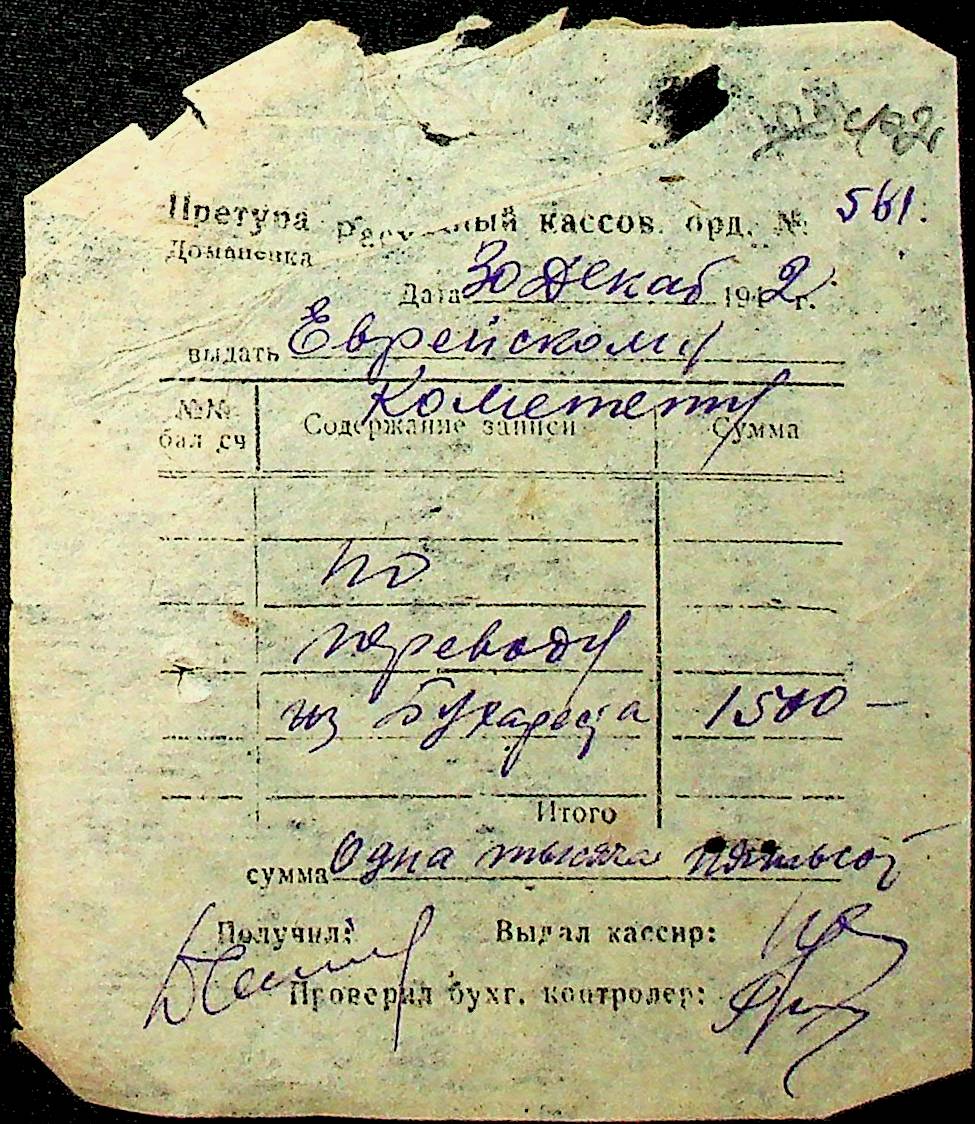 Претура Расходный кассов. орд. № 561.
Доманевка
Дата 30 Декаб 1942 г.
выдать Еврейскому
Кометету
№№ бал сч Содержание записи Сумма
по
переводу
из Бухареста 1500 —
Итого
сумма Одна тысяча пятьсот
Получил: Выдал кассир:
Проверил бухг. контролер: